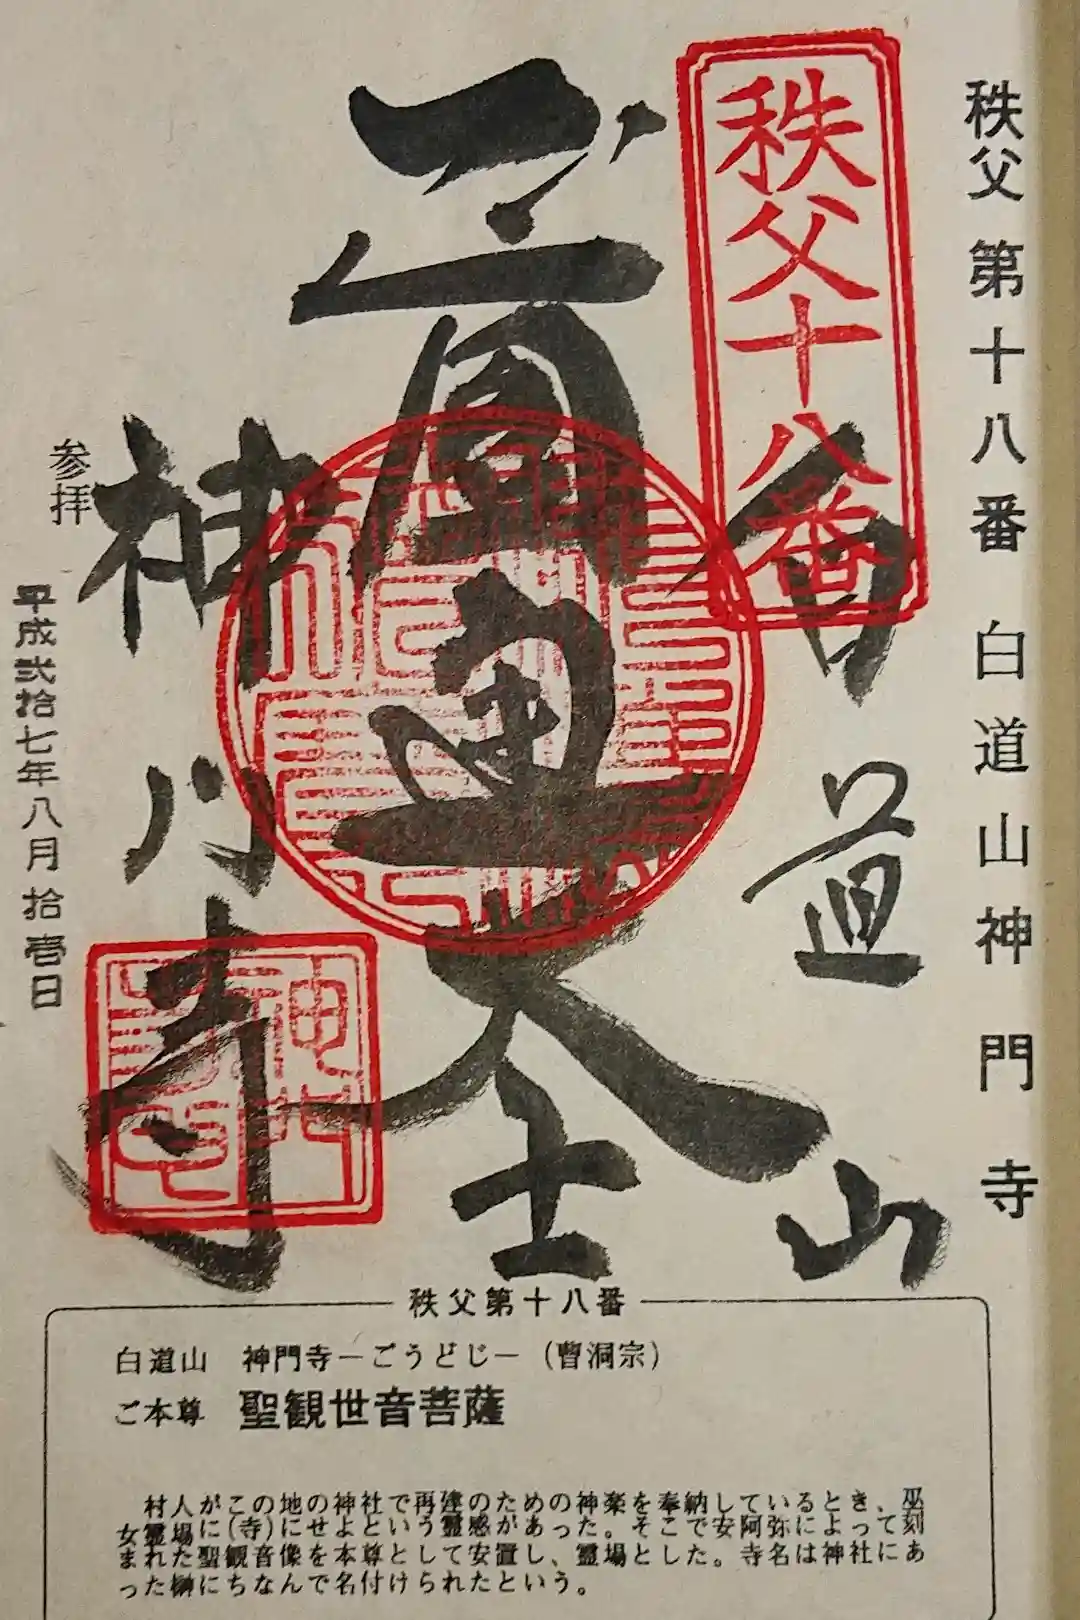 秩父第十八番 白道山神門寺
秩父十八番
白道山
大士
神門寺
参拝
平成弐拾七年八月拾壱日
秩父第十八番
白道山 神門寺－ごうどじ－（曹洞宗）
ご本尊 聖観世音菩薩
村人がこの地の神社で再建のための神楽を奉納しているとき、巫
女霊場に(寺)にせよという霊感があった。そこで安阿弥によって刻
まれた聖観音像を本尊として安置し、霊場とした。寺名は神社にあ
った榊にちなんで名付けられたという。